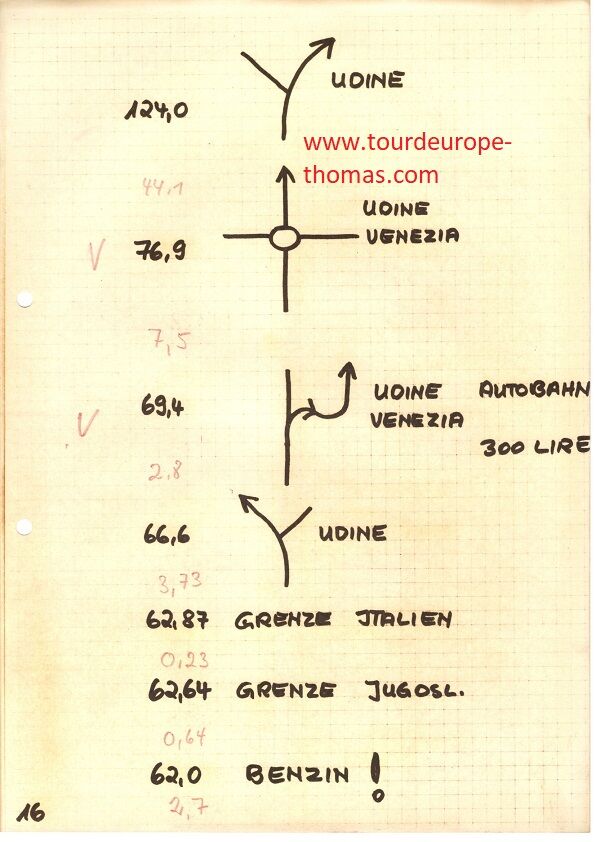 UDINE
124,0
www.tourdeurope-
thomas.com
44,1
UDINE
V 76,9 VENEZIA
7,5
UDINE AUTOBAHN
V 69,4 VENEZIA
300 LIRE
2,8
66,6 UDINE
3,73
62,87 GRENZE ITALIEN
0,23
62,64 GRENZE JUGOSL.
0,64
62,0 BENZIN !
2,7
16